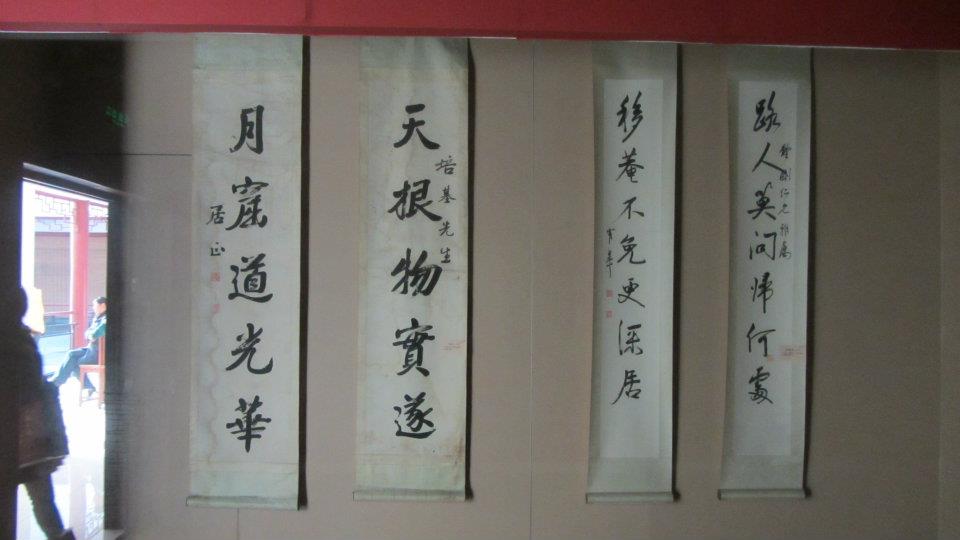 路人莫問歸何處
移菴不免更深居
天根物實遂
培基先生
月窟道光華
居正